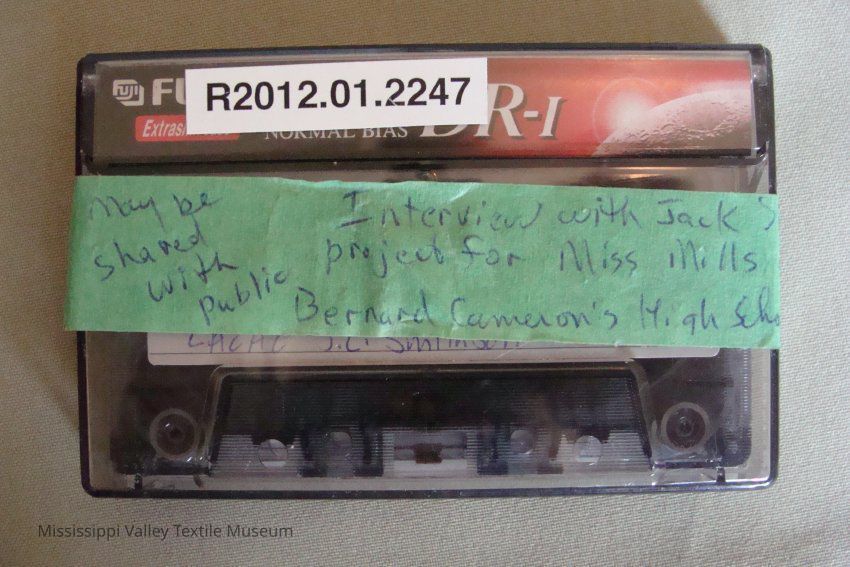 FUJI
R2012.01.2247
DR-I
NORMAL BIAS
May be
shared
with
public
Interview with Jack S
project for Miss Mills
Bernard Cameron's High Scho
Mississippi Valley Textile Museum